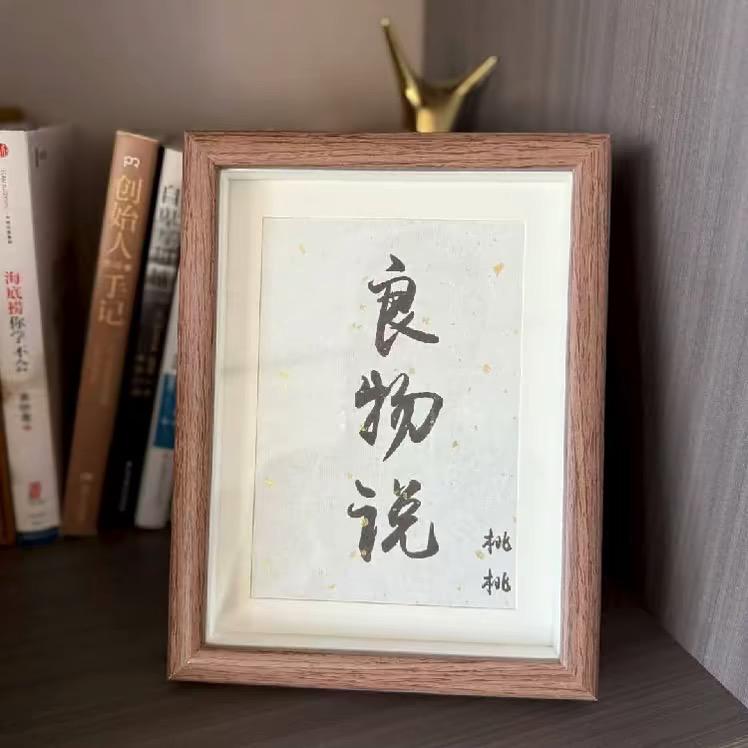 良物说
桃桃
海底捞你学不会
创始人手记